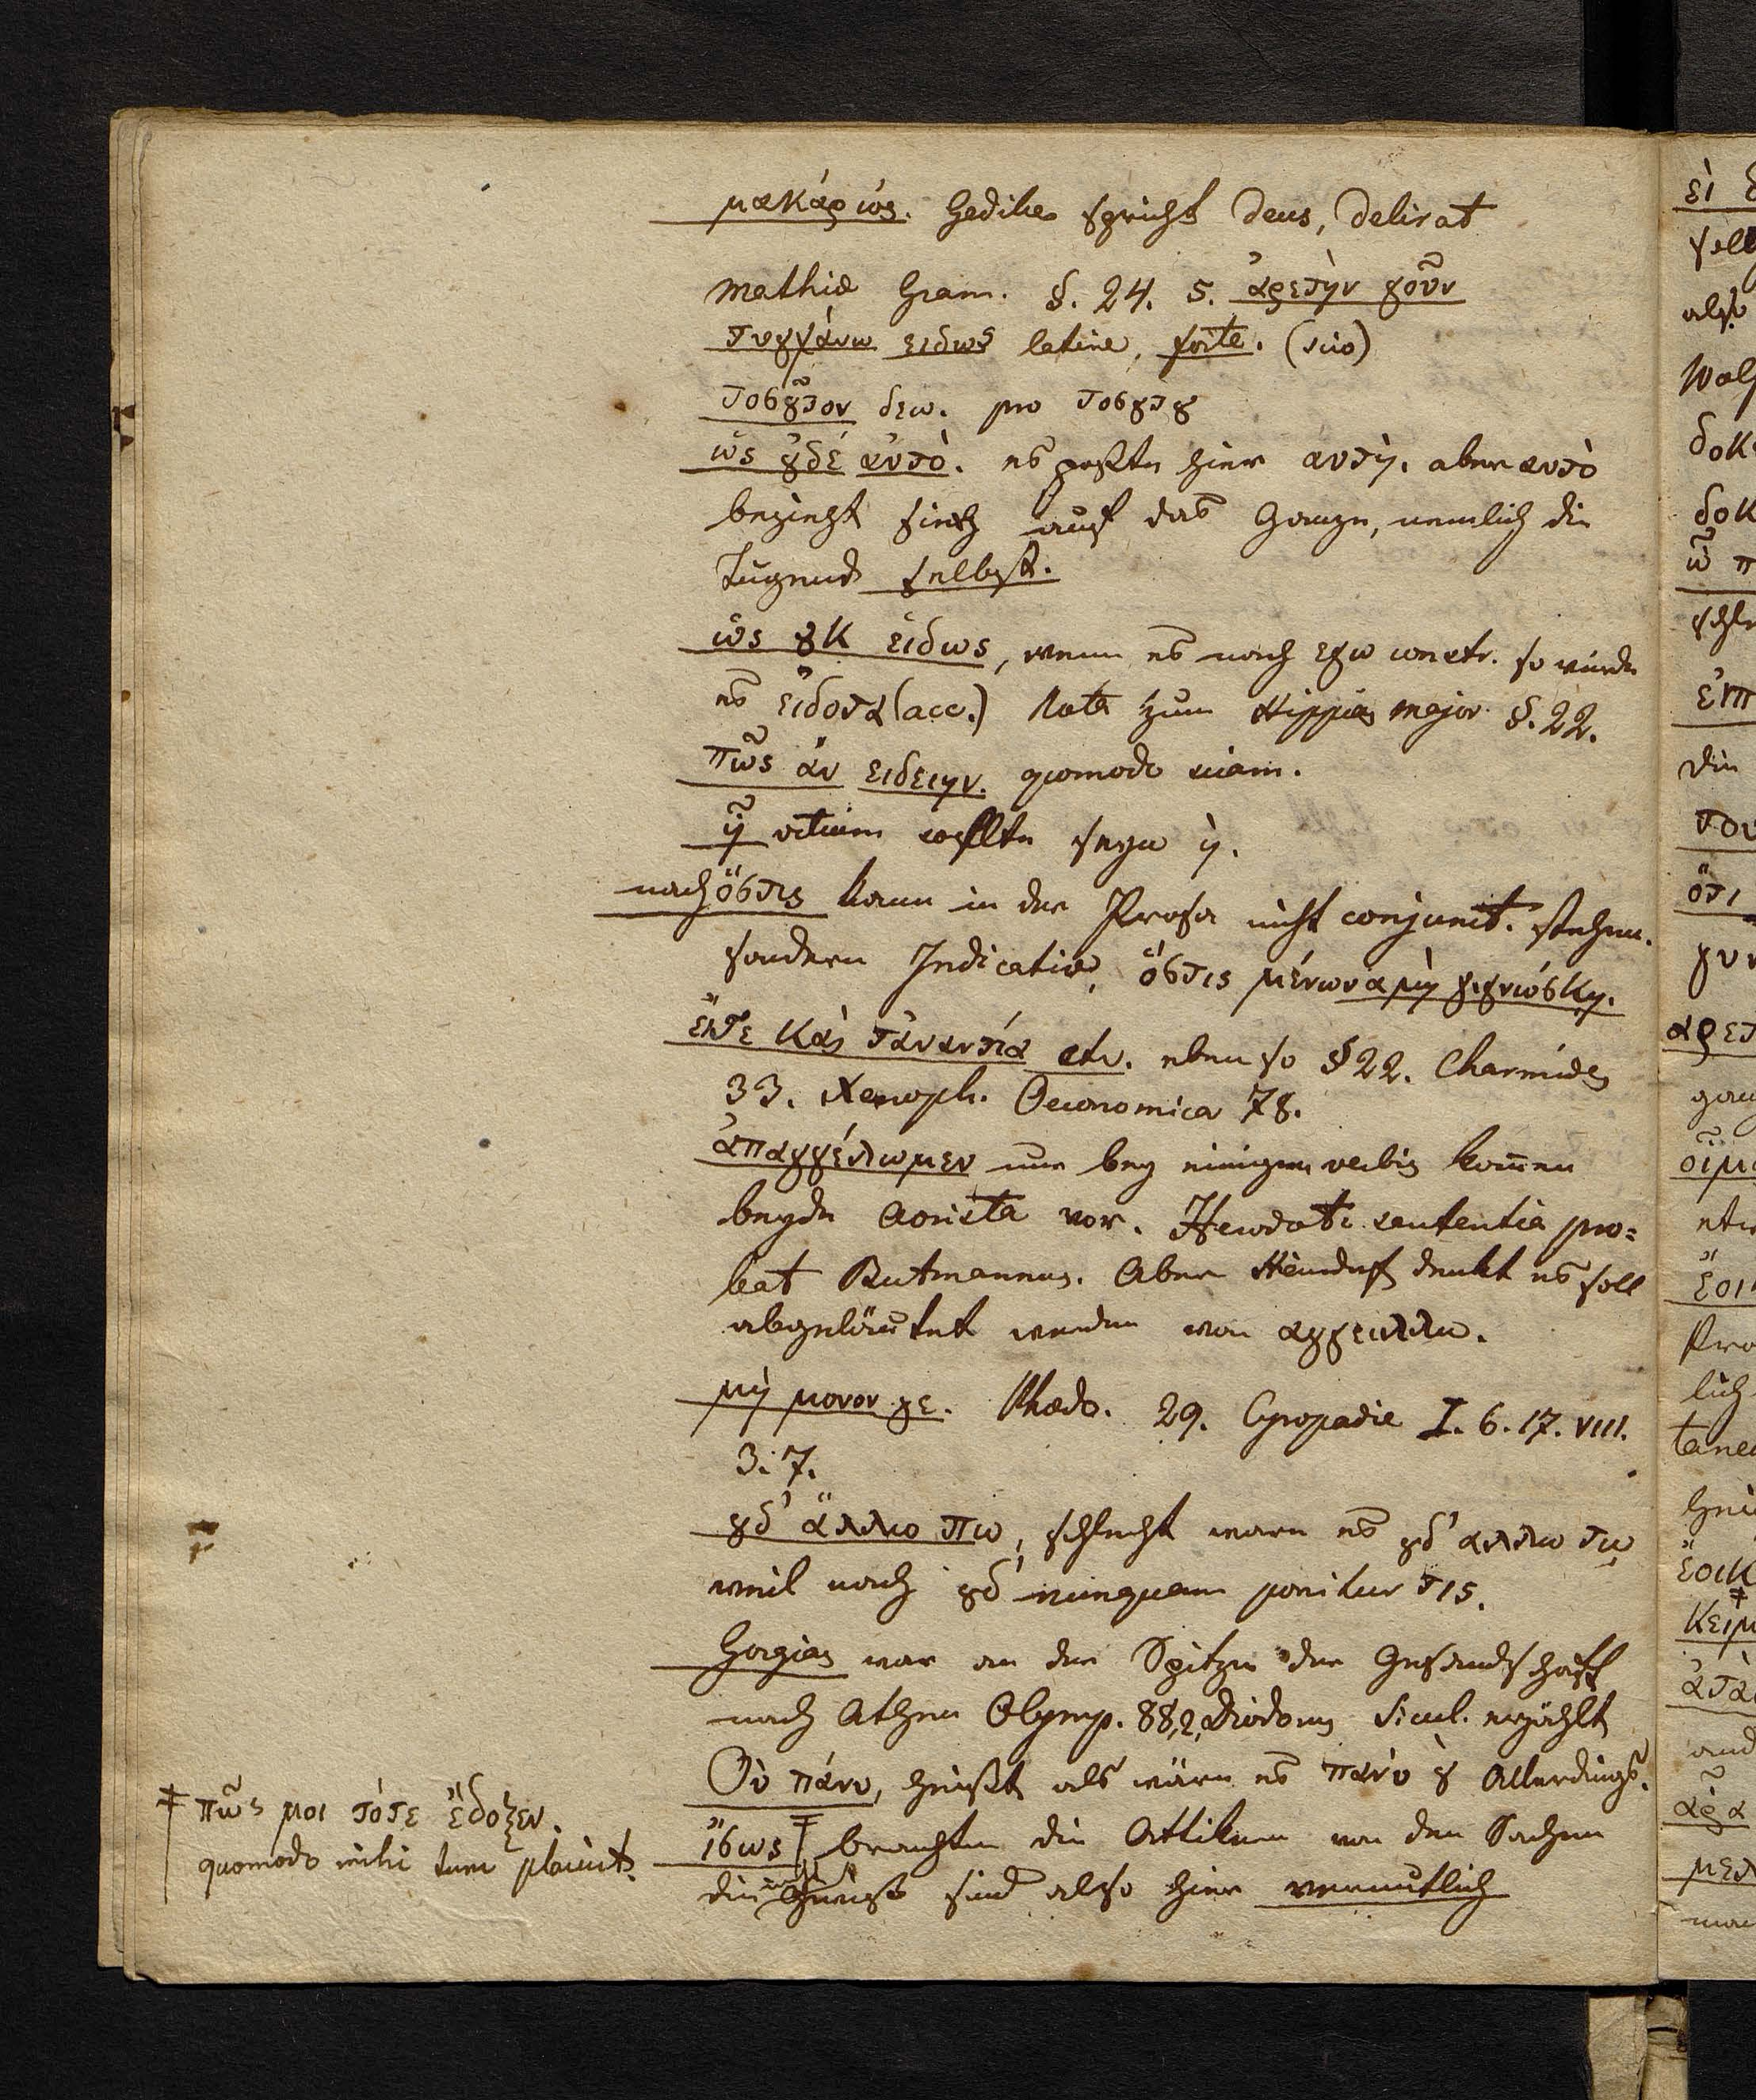 μακάριός. Gedike spricht Deus, delirat
Mathiae Gram. §. 24. 5. ἀρετὴν γοῦν
τυγχάνω ειδως latine, forte. (scio)
τοσȣ͂τον δεω. pro τοσȣτȣ
ὥς ȣδέ ἀυτὸ. es paßte hier αυτὴ. aber αυτὸ
bezieht sich auf das Ganze, nemlich die
Tugend selbst.
ὡς ȣκ ἐιδως, wenn es nach εγω constr. so würde
es ἐιδοτα (acc.) Nota zum Hippias major §. 22.
πῶς ἄν ειδειην. quomodo sciam.
ἦ vitium sollte seyn ἢ.
nach ὅστις kann in der Prosa nicht conjunct. stehen.
sondern Indicativ, ὅστις μένωνα μὴ γιγνώσκη.
ἔιτε κἀι τἀναντία etc. eben so § 22. Charmides
33. Xenoph. Oeconomica 78.
ἀπαγγέλωμεν nur bey einigen verbis komen
beyde Aorista vor. Herodoti sententia pro-
bat Butmannus. Aber Heindorf denkt es soll
abgeläutet werden von αγγειλλω.
μὴ μονον γε. Phaedo. 29. Cyropadie I. 6. 17. VIII.
3. 7.
ȣδ' ἄλλω πω, schlecht ware es ȣδ' αλλω τω
weil nach ȣδ' nunquam ponitur τις.
Gorgias war an der Spitze der Gesandschaft
nach Athen Olymp. 88,2, Diodorus Sicul. erzählt
Οὐ πάνυ, heißt als wäre es πανὺ ȣ Allerdings.
ἴσως ‡ brauchten die Attiker von den Sachen
die gewiß sind also hier vermutlich
‡ πῶς μοι τότε ἔδοξεν.
quomodo mihi tum placuit.